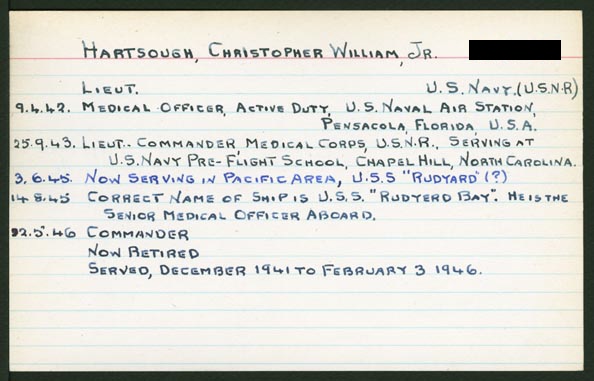 HARTSOUGH, CHRISTOPHER WILLIAM, JR.
LIEUT. U.S. NAVY. (U.S.N.R)
9.4.42. MEDICAL OFFICER, ACTIVE DUTY, U.S. NAVAL AIR STATION,
PENSACOLA, FLORIDA, U.S.A.
25.9.43. LIEUT.. COMMANDER, MEDICAL CORPS, U.S.N.R., SERVING AT
U.S. NAVY PRE-FLIGHT SCHOOL, CHAPEL HILL, NORTH CAROLINA.
3.6.45. NOW SERVING IN PACIFIC AREA, U.S.S "RUDYARD" (?)
14.8.45 CORRECT NAME OF SHIP IS U.S.S. "RUDYERD BAY". HE IS THE
SENIOR MEDICAL OFFICER ABOARD.
22.5.46 COMMANDER
NOW RETIRED
SERVED, DECEMBER 1941 TO FEBRUARY 3 1946.